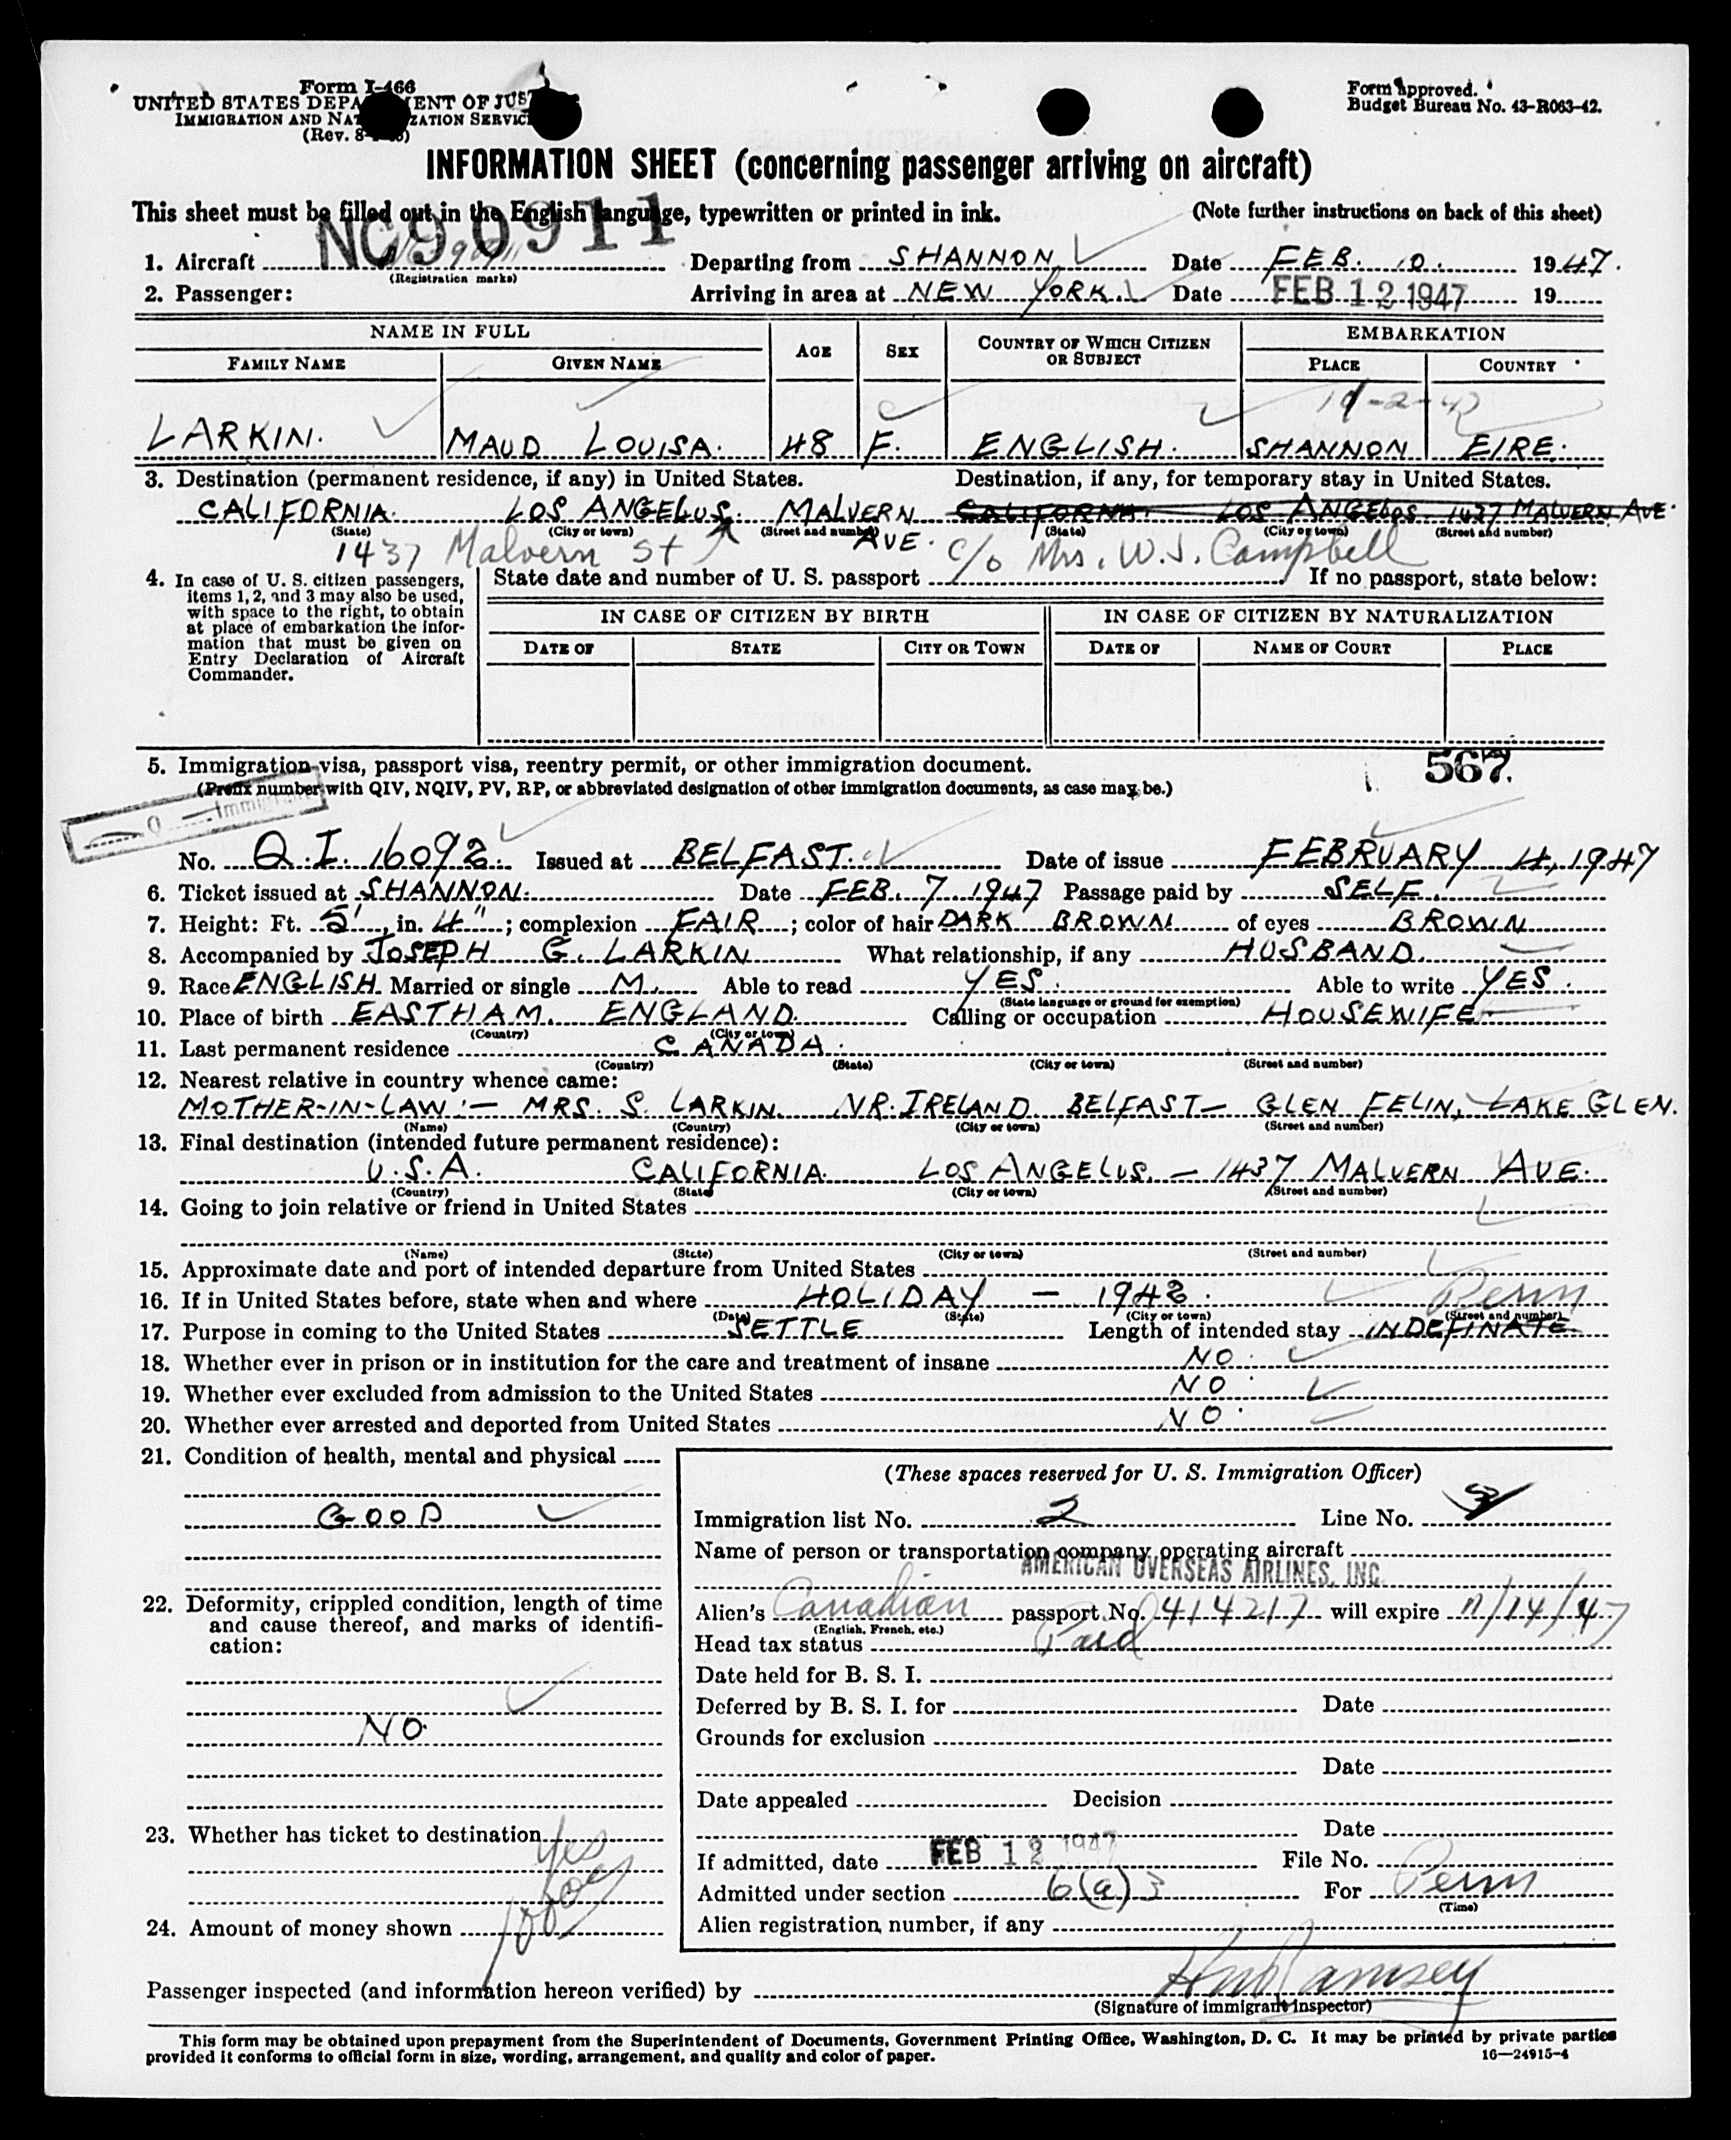 Form I-466
UNITED STATES DEPARTMENT OF JUSTICE
IMMIGRATION AND NATURALIZATION SERVICE
(Rev. 8-
Form approved.
Budget Bureau No. 43-R063-42.
INFORMATION SHEET (concerning passenger arriving on aircraft)
This sheet must be filled out in the English language, typewritten or printed in ink. (Note further instructions on back of this sheet)
NC90911
1. Aircraft Departing from SHANNON Date FEB. 10. 1947.
(Registration marks)
2. Passenger: Arriving in area at NEW YORK. Date FEB 12 1947 19
NAME IN FULL AGE SEX COUNTRY OF WHICH CITIZEN OR SUBJECT EMBARKATION
FAMILY NAME GIVEN NAME PLACE COUNTRY
LARKIN. MAUD LOUISA. 48 F. ENGLISH. SHANNON EIRE.
3. Destination (permanent residence, if any) in United States. Destination, if any, for temporary stay in United States.
CALIFORNIA. LOS ANGELUS. MALVERN AVE. CALIFORNIA. LOS ANGELOS. 1437 MALVERN AVE.
(State) (City or town) (Street and number) (State) (City or town) (Street and number)
1437 Malvern St c/o Mrs. W.J. Campbell
4. In case of U. S. citizen passengers, items 1, 2, and 3 may also be used, with space to the right, to obtain at place of embarkation the information that must be given on Entry Declaration of Aircraft Commander.
State date and number of U. S. passport If no passport, state below:
IN CASE OF CITIZEN BY BIRTH IN CASE OF CITIZEN BY NATURALIZATION
DATE OF STATE CITY OR TOWN DATE OF NAME OF COURT PLACE
5. Immigration visa, passport visa, reentry permit, or other immigration document. 567.
(Prefix number with QIV, NQIV, PV, RP, or abbreviated designation of other immigration documents, as case may be.)
No. Q.I. 16092. Issued at BELFAST. Date of issue FEBRUARY 4, 1947
6. Ticket issued at SHANNON. Date FEB. 7 1947 Passage paid by SELF.
7. Height: Ft. 5', in. 4"; complexion FAIR; color of hair DARK BROWN of eyes BROWN
8. Accompanied by JOSEPH G. LARKIN What relationship, if any HUSBAND.
9. Race ENGLISH. Married or single M. Able to read YES. Able to write YES.
(State language or ground for exemption)
10. Place of birth EASTHAM. ENGLAND. Calling or occupation HOUSEWIFE.
(Country) (City or town)
11. Last permanent residence CANADA.
(Country) (State) (City or town) (Street and number)
12. Nearest relative in country whence came:
MOTHER-IN-LAW:- MRS. S. LARKIN. NR. IRELAND BELFAST- GLEN FELIN, LAKE GLEN.
(Name) (Country) (City or town) (Street and number)
13. Final destination (intended future permanent residence):
U.S.A. CALIFORNIA. LOS ANGELUS. - 1437 MALVERN AVE.
(Country) (State) (City or town) (Street and number)
14. Going to join relative or friend in United States
(Name) (State) (City or town) (Street and number)
15. Approximate date and port of intended departure from United States
16. If in United States before, state when and where HOLIDAY - 1942. Perm
(Date) (State) (City or town) (Street and number)
17. Purpose in coming to the United States SETTLE Length of intended stay INDEFINATE.
18. Whether ever in prison or in institution for the care and treatment of insane NO.
19. Whether ever excluded from admission to the United States NO.
20. Whether ever arrested and deported from United States NO.
21. Condition of health, mental and physical
GOOD
22. Deformity, crippled condition, length of time and cause thereof, and marks of identification:
NO.
23. Whether has ticket to destination Yes
24. Amount of money shown
(These spaces reserved for U. S. Immigration Officer)
Immigration list No. 2 Line No.
Name of person or transportation company operating aircraft
AMERICAN OVERSEAS AIRLINES, INC.
Alien's Canadian passport No. 414217 will expire 11/14/47
(English, French, etc.)
Head tax status Paid
Date held for B. S. I.
Deferred by B. S. I. for Date
Grounds for exclusion
Date
Date appealed Decision
Date
If admitted, date FEB 12 1947 File No.
Admitted under section 6(a)3 For Perm
(Time)
Alien registration number, if any
Passenger inspected (and information hereon verified) by
(Signature of immigrant inspector)
This form may be obtained upon prepayment from the Superintendent of Documents, Government Printing Office, Washington, D. C. It may be printed by private parties
provided it conforms to official form in size, wording, arrangement, and quality and color of paper. 16—24915-4